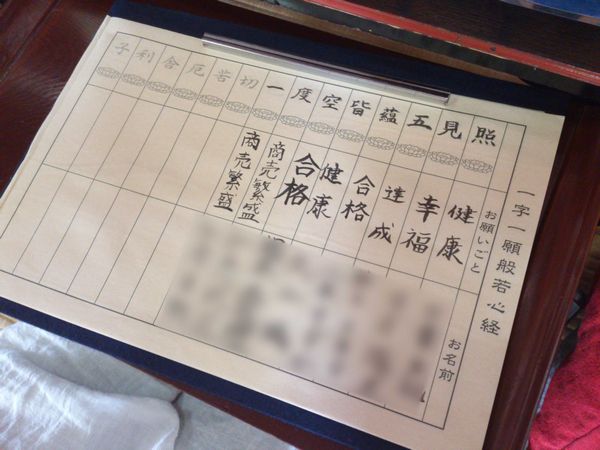 一字一願般若心経
お願いごと
お名前
照見五蘊皆空度一切苦厄舎利子
健康
幸福
達成
合格
健康
合格
商売繁盛
商売繁盛